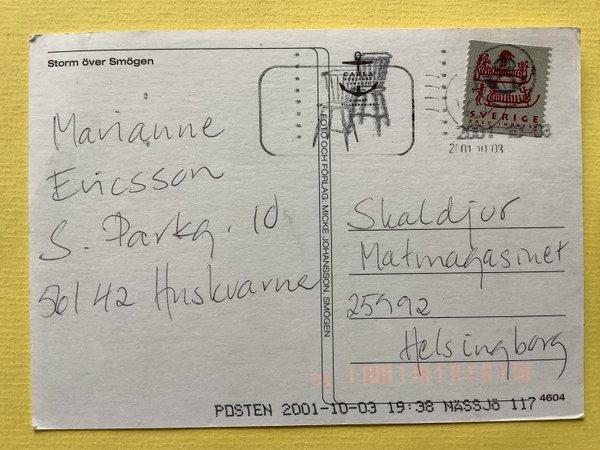 Storm över Smögen
CARLA
SVERIGE
BREV INRIKES
2001-10-03
2001-10-03
Marianne
Ericsson
S. Parkg. 10
56142 Huskvarna
FOTO OCH FÖRLAG: MICKE JOHANSSON, SMÖGEN
Skaldjur
Matmagasinet
25992
Helsingborg
POSTEN 2001-10-03 19:38 NÄSSJÖ 117
4604